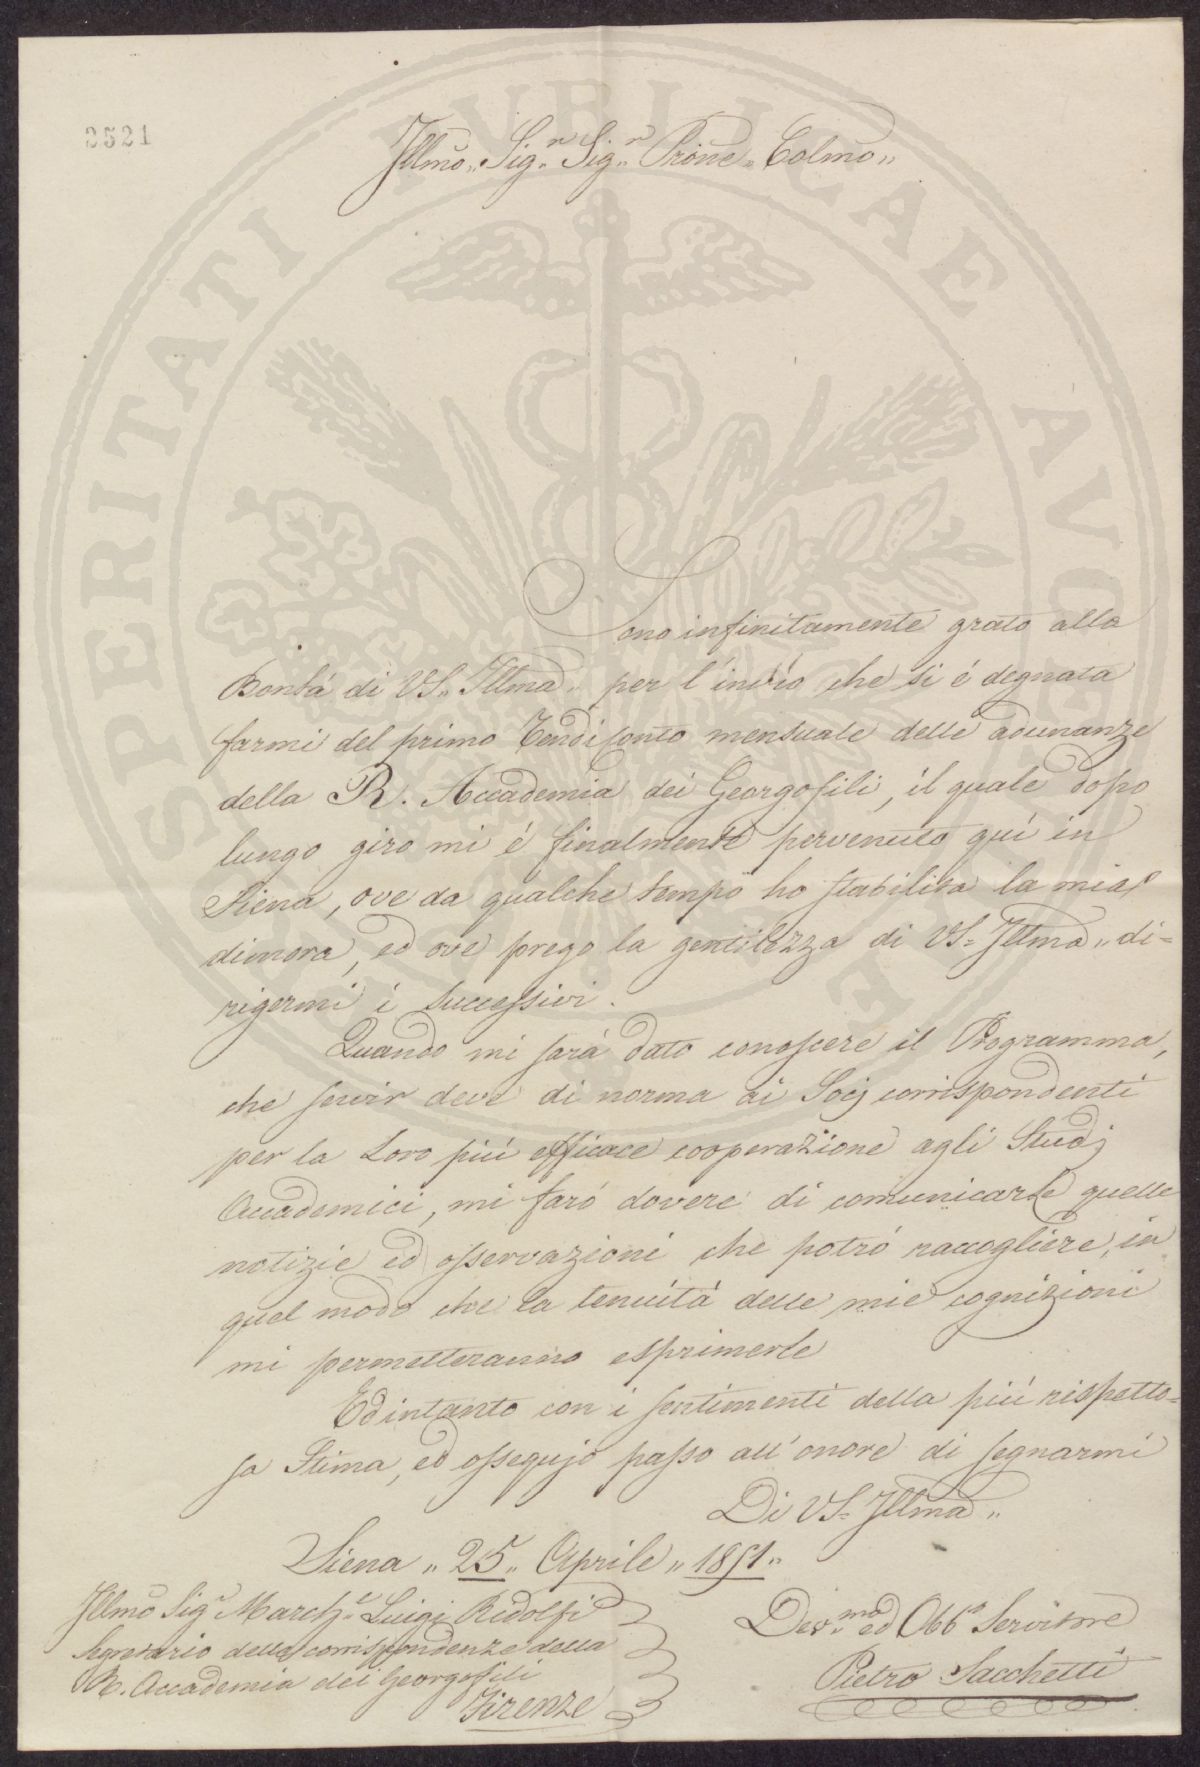 2521
Illmo„ Sig.r Sig.r Prone„ Colmo„
Sono infinitamente grato alla
Bontá di VS„ Illma„ per l'invío che si é degnata
farmi del primo Rendiconto mensuale delle adunanze
della R. Accademia dei Georgofili, il quale dopo
lungo giro mi é finalmente pervenuto quí in
Siena, ove da qualche tempo ho stabilita la mia
dimora, ed ove prego la gentilezza di VS= Illma„ di=
rigermi i successivi.
Quando mi sará dato conoscere il Programma,
che servir deve di norma ai Socj corrispondenti
per la Loro piú efficace cooperazione agli Studj
Accademici, mi faró dovere di comunicarle quelle
notizie ed osservazioni che potró raccogliere, in
quel modo che la tenuitá delle mie cognizioni
mi permetteranno esprimerle
Ed intanto con i sentimenti della piú rispetto=
sa Stima, ed ossequjo passo all'onore di segnarmi
Di VS= Illma„
Siena „ 25„ Aprile „ 1851„
Illmo Sigr March.e Luigi Ridolfi
Segretario delle corrispondenze della
R. Accademia dei Georgofili
Firenze
Dev.mo ed Obb.o Servitore
Pietro Sacchetti
SPERITATI PVBLICAE AVGENDAE